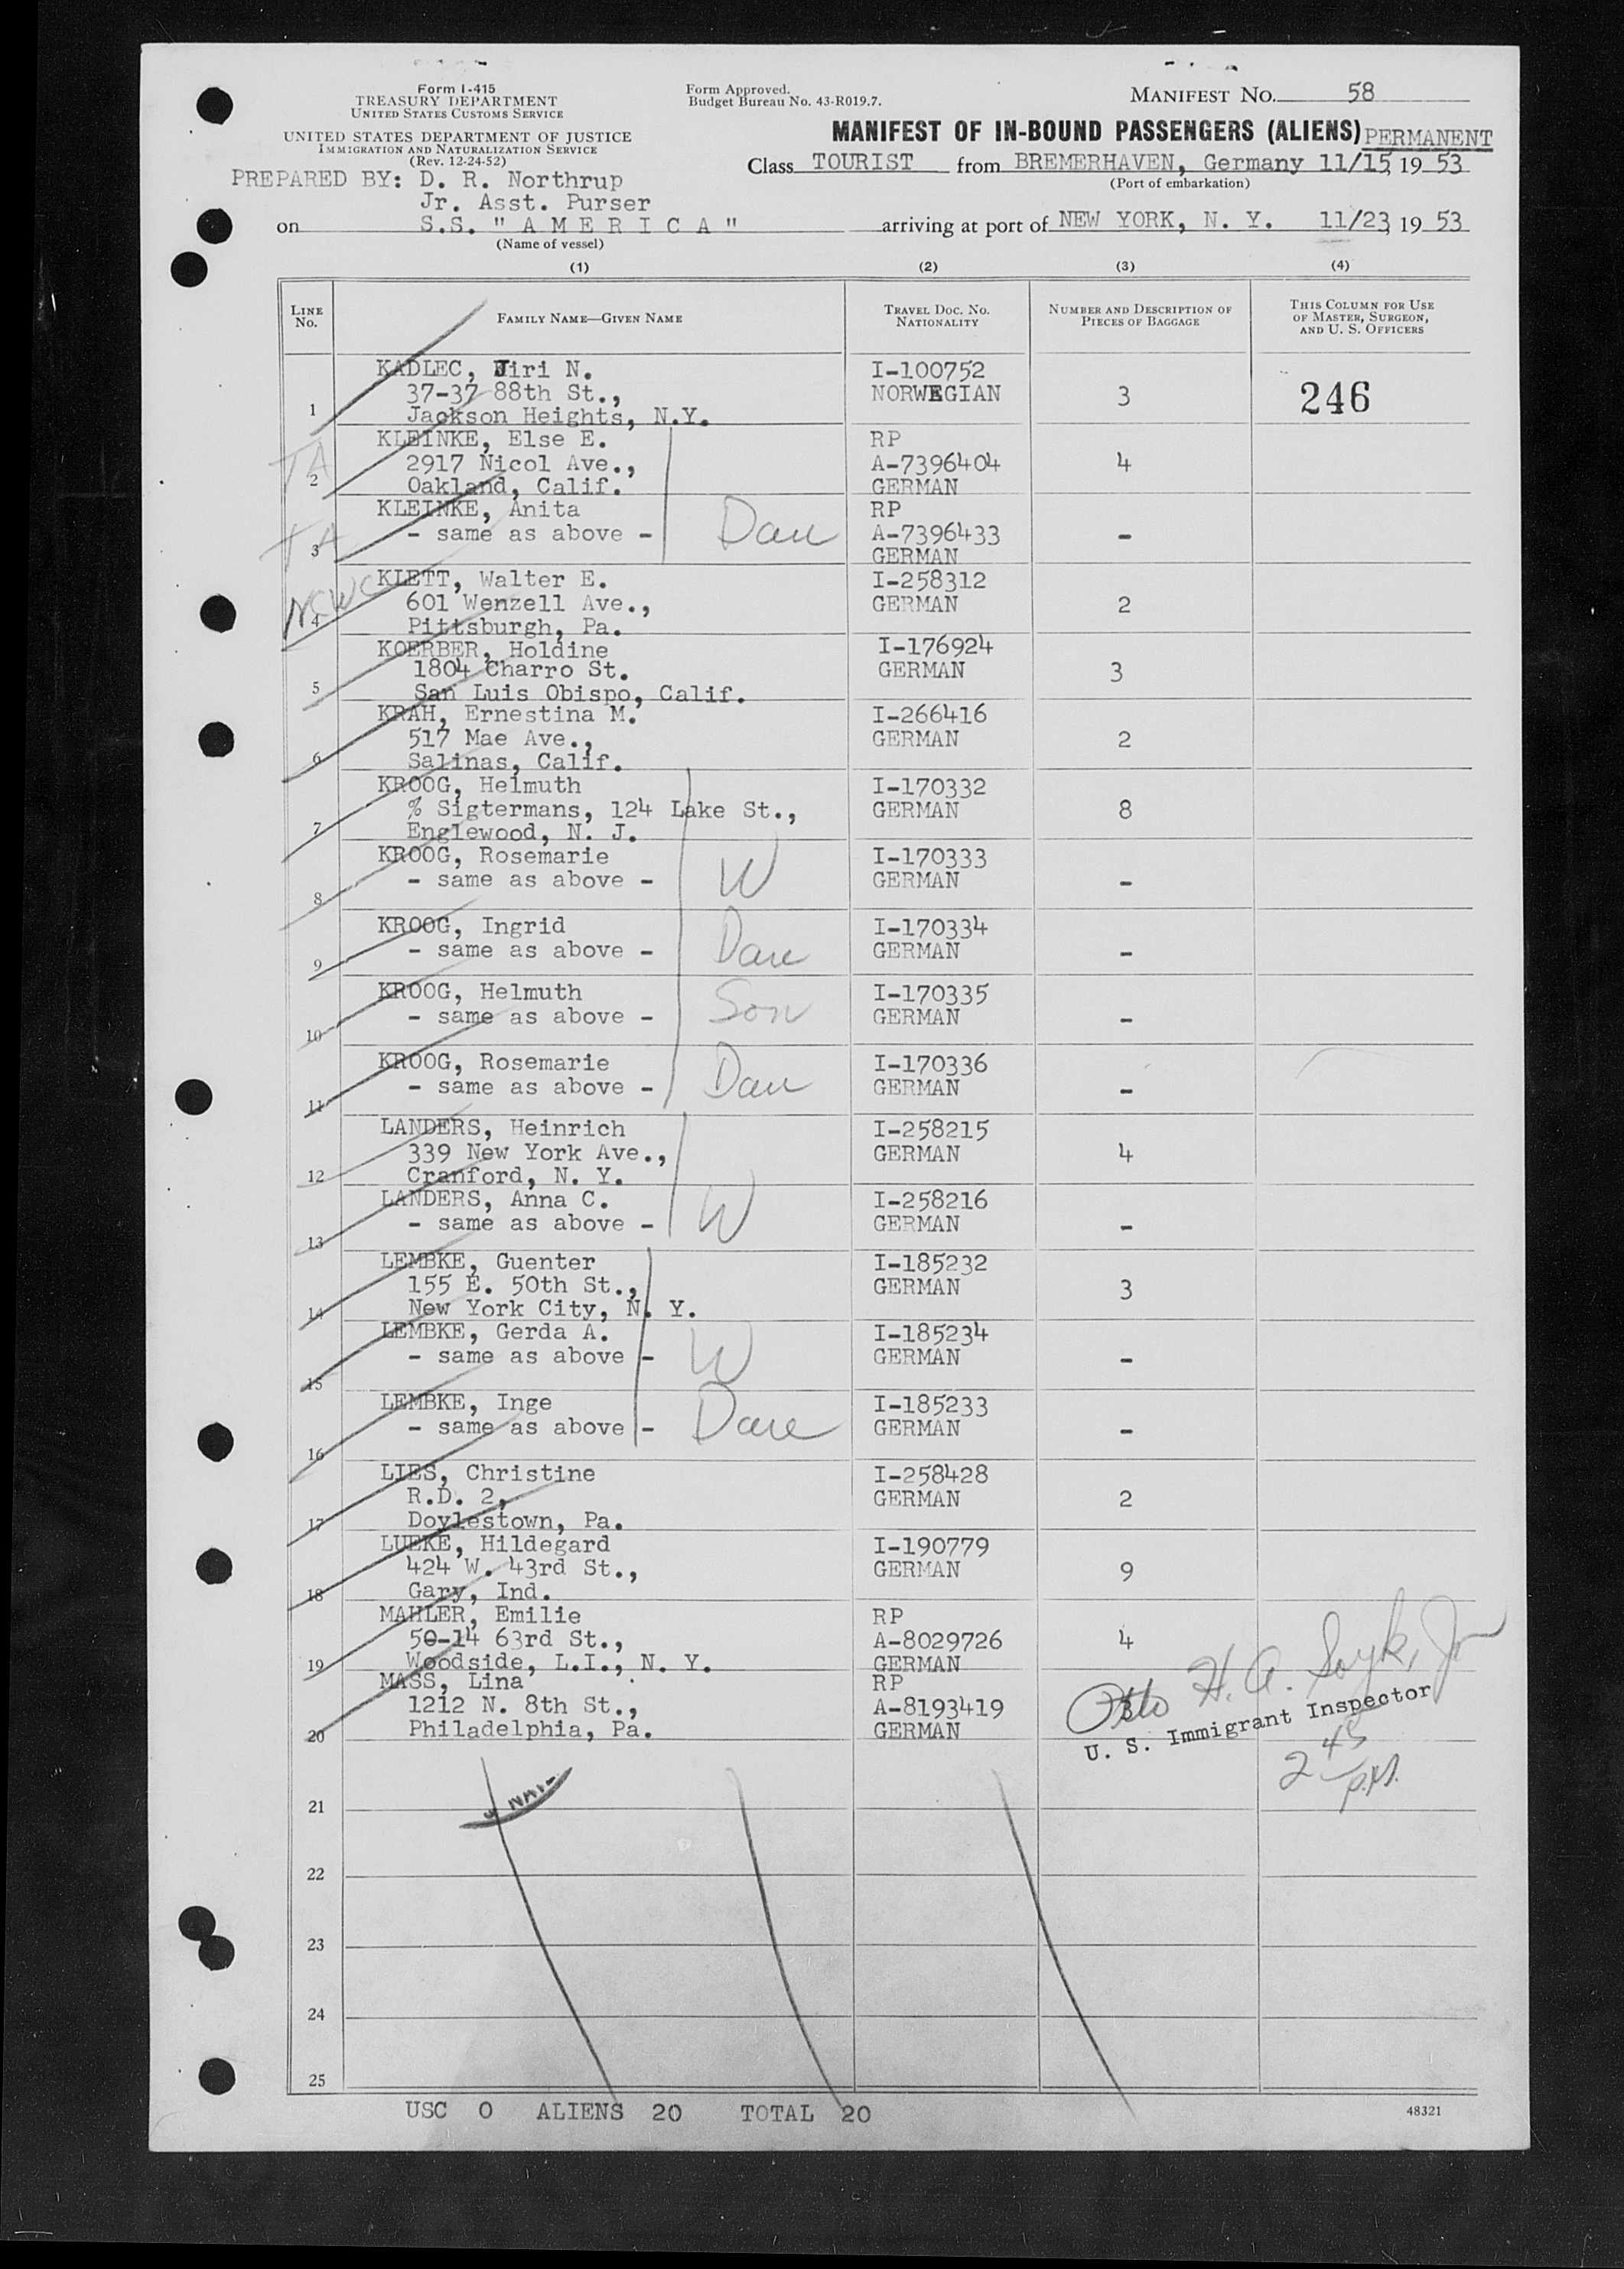 Form I-415
TREASURY DEPARTMENT
UNITED STATES CUSTOMS SERVICE
UNITED STATES DEPARTMENT OF JUSTICE
IMMIGRATION AND NATURALIZATION SERVICE
(Rev. 12-24-52)
Form Approved.
Budget Bureau No. 43-R019.7.
MANIFEST NO. 58
MANIFEST OF IN-BOUND PASSENGERS (ALIENS) PERMANENT
Class TOURIST from BREMERHAVEN, Germany 11/15, 19 53
(Port of embarkation)
PREPARED BY: D. R. Northrup
Jr. Asst. Purser
on S.S. "A M E R I C A" arriving at port of NEW YORK, N. Y. 11/23, 19 53
(Name of vessel)
(1) (2) (3) (4)
LINE No. FAMILY NAME—GIVEN NAME TRAVEL DOC. NO. NATIONALITY NUMBER AND DESCRIPTION OF PIECES OF BAGGAGE THIS COLUMN FOR USE OF MASTER, SURGEON, AND U. S. OFFICERS
KADLEC, Jiri N. I-100752
37-37 88th St., NORWEGIAN 3 246
1 Jackson Heights, N.Y.
KLEINKE, Else E. RP
TA 2917 Nicol Ave., A-7396404 4
2 Oakland, Calif. GERMAN
KLEINKE, Anita RP
TA - same as above - Dau A-7396433 -
3 GERMAN
KLETT, Walter E. I-258312
601 Wenzell Ave., GERMAN 2
4 Pittsburgh, Pa.
KOERBER, Holdine I-176924
1804 Charro St. GERMAN 3
5 San Luis Obispo, Calif.
KRAH, Ernestina M. I-266416
517 Mae Ave., GERMAN 2
6 Salinas, Calif.
KROOG, Helmuth I-170332
% Sigtermans, 124 Lake St., GERMAN 8
7 Englewood, N. J.
KROOG, Rosemarie I-170333
- same as above - W GERMAN -
8
KROOG, Ingrid I-170334
- same as above - Dau GERMAN -
9
KROOG, Helmuth I-170335
- same as above - Son GERMAN -
10
KROOG, Rosemarie I-170336
- same as above - Dau GERMAN -
11
LANDERS, Heinrich I-258215
339 New York Ave., GERMAN 4
12 Cranford, N. Y.
LANDERS, Anna C. I-258216
- same as above - W GERMAN -
13
LEMBKE, Guenter I-185232
155 E. 50th St., GERMAN 3
14 New York City, N. Y.
LEMBKE, Gerda A. I-185234
- same as above - W GERMAN -
15
LEMBKE, Inge I-185233
- same as above - Dau GERMAN -
16
LIES, Christine I-258428
R.D. 2, GERMAN 2
17 Doylestown, Pa.
LUEKE, Hildegard I-190779
424 W. 43rd St., GERMAN 9
18 Gary, Ind.
MAHLER, Emilie RP
50-14 63rd St., A-8029726 4
19 Woodside, L.I., N. Y. GERMAN
MASS, Lina RP
1212 N. 8th St., A-8193419 3
20 Philadelphia, Pa. GERMAN
U. S. Immigrant Inspector
2 45 P.M.
21
22
23
24
25
USC 0 ALIENS 20 TOTAL 20
48321